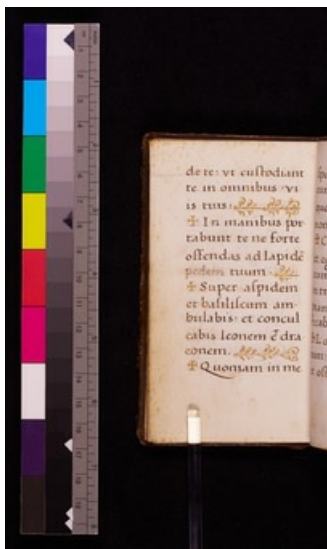 de te: vt custodiant
te in omnibus vi
is tuis.
✠ In manibus por
tabunt te ne forte
offendas ad lapidē
pedem tuum.
✠ Super aspidem
et basiliscum am-
bulabis: et concul
cabis leonem & dra
conem.
✠ Quoniam in me